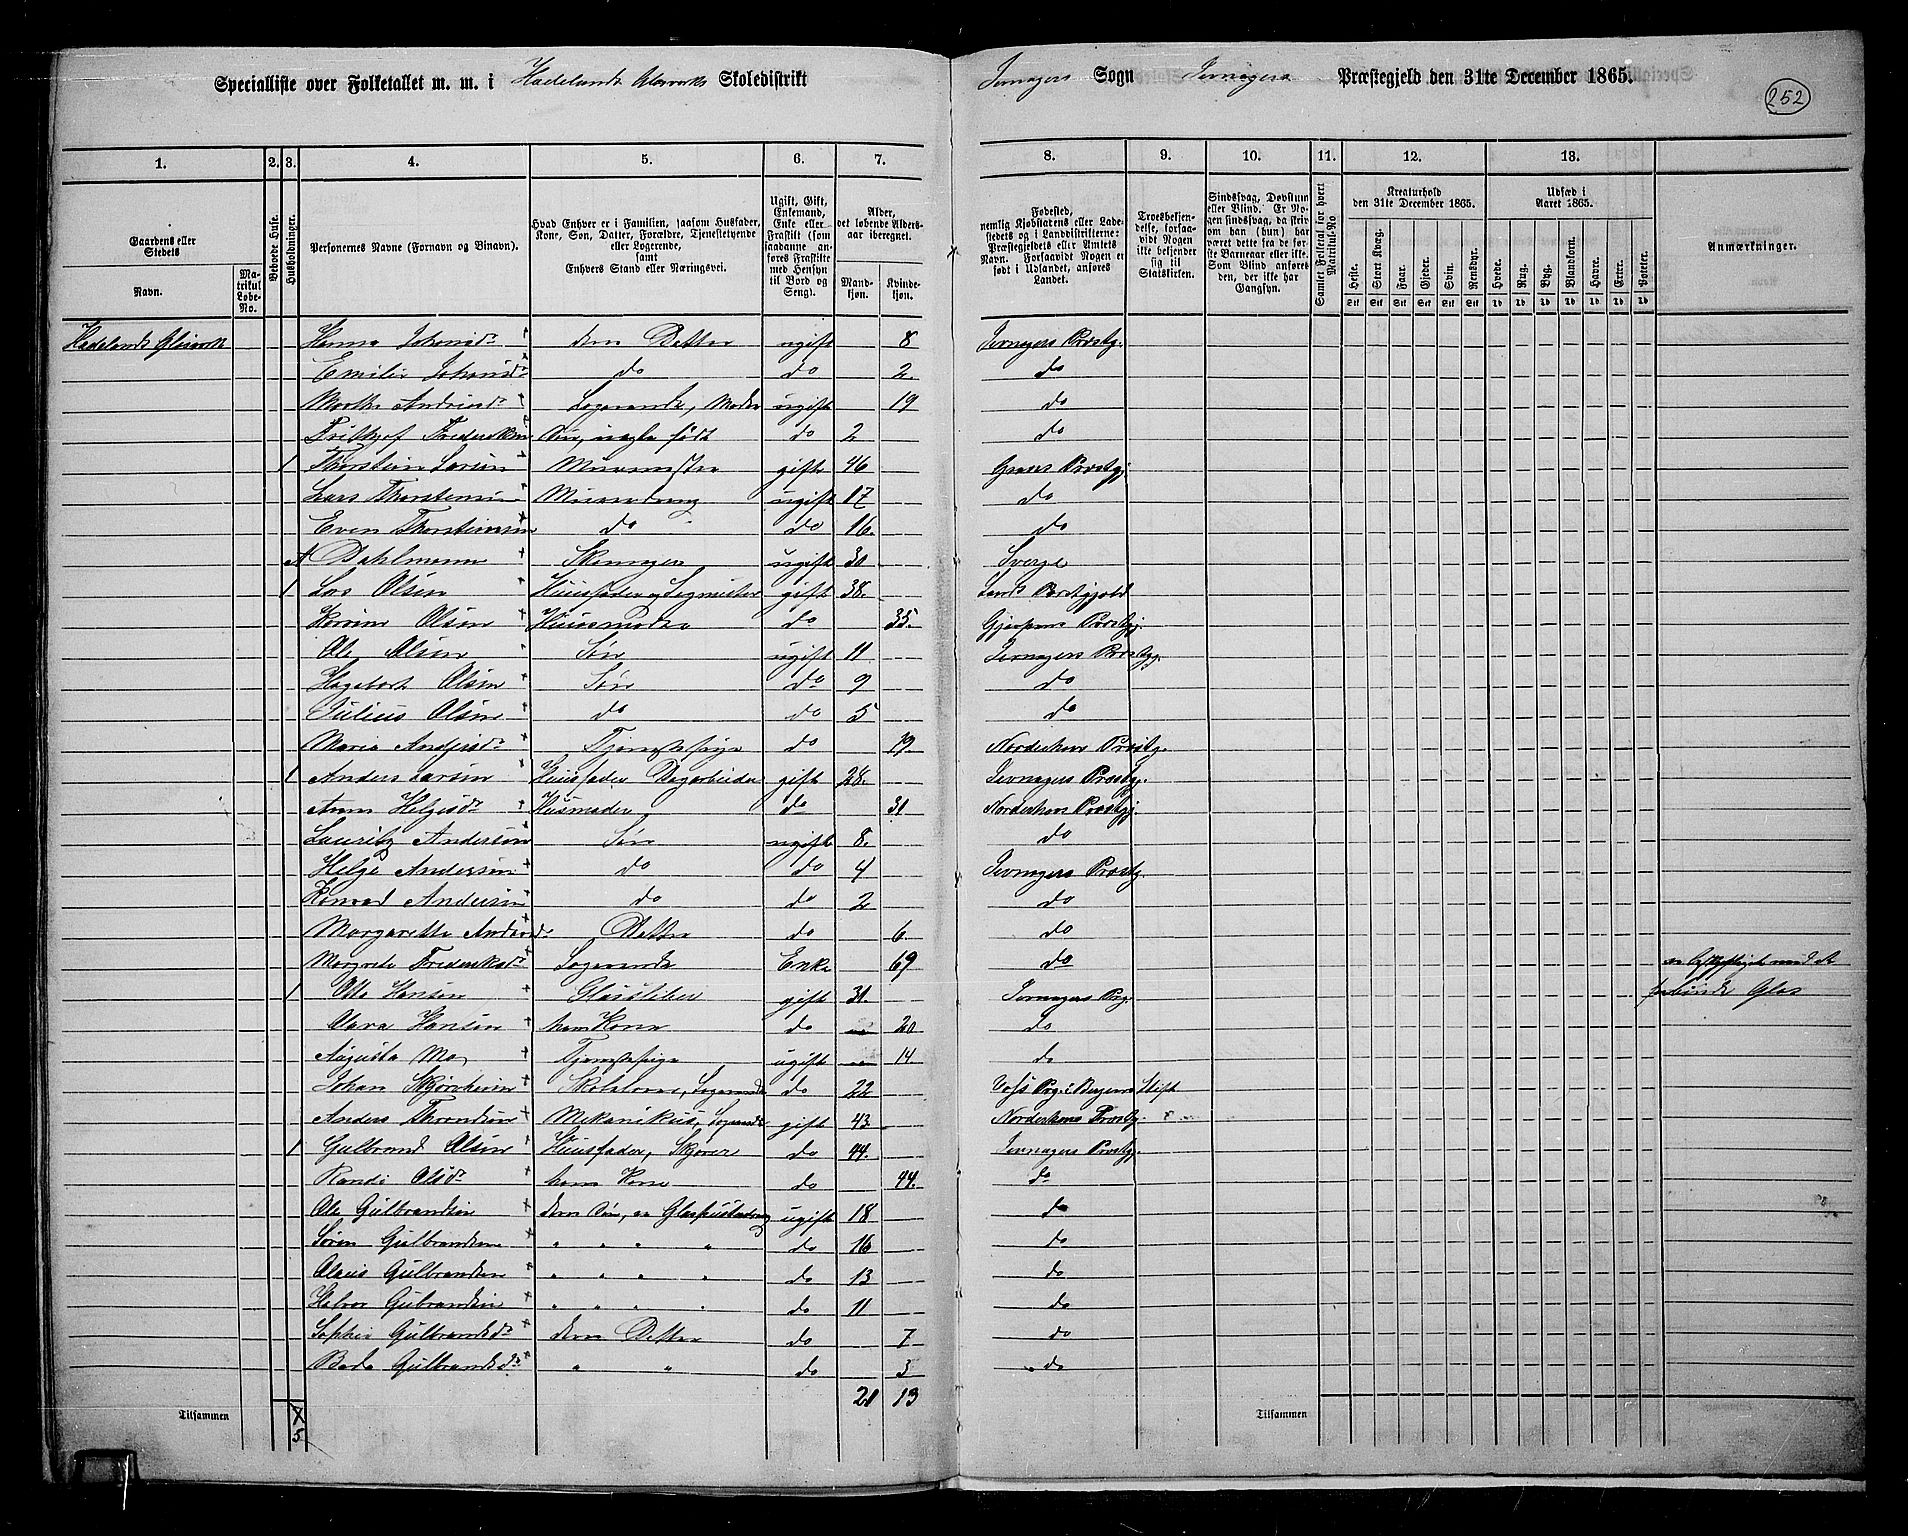 Specialliste over Folketallet m. m. i Hadelands Glasværks Skoledistrikt Jevnagers Sogn Jevnagers Præstegjeld den 31te December 1865.
252
1. 2. 3. 4. 5. 6. 7. 8. 9. 10. 11. 12. 13.
Gaardenes eller Stedets
Navn.
Matrikul Løbe-No.
Beboede Huse.
Husholdninger.
Personernes Navne (Fornavn og Binavn).
Hvad Enhver er i Familien, saasom Husfader, Kone, Søn, Datter, Forældre, Tjenestetyende eller Logerende, samt Enhvers Stand eller Næringsvei.
Ugift, Gift, Enkemand, Enke eller Fraskilt (som saadanne anføres Fraskilte med Hensyn til Bord og Seng).
Alder, det løbende Aldersaar iberegnet.
Mandkjøn. Kvindekjøn.
Fødested, nemlig Kjøbstadens eller Ladestedets og i Landdistrikterne: Præstegjeldets eller Amtets Navn. Forsaavidt Nogen er født i Udlandet, anføres Landet.
Troesbekjendelse, forsaavidt Nogen ikke bekjender sig til Statskirken.
Sindssvag, Døvstum eller Blind. Er Nogen sindssvag, da skrives om han (hun) har været dette fra de første Barneaar eller ikke. Som Blind anføres den, der ikke har Gangsyn.
Samlet Folketal for hvert Matrikul-No
Kreaturhold den 31te December 1865.
Heste. Stort Kvæg. Faar. Gjeder. Svin. Rensdyr.
Udsæd i Aaret 1865.
Hvede. Rug. Byg. Blandkorn. Havre. Erter. Poteter.
Anmærkninger.
Hadelands Glasværk Hanna Johansd. deres Datter ugift 8 Jevnagers Præstg.
Emilie Johansd. do do 2 do
Marthe Andersd. Logerende, Moder ugift 19 do
Frithjof Frederiksen Søn, uægte født do 2 do
1 Thorstein Larsen Murmester gift 46 Grans Præstgj.
Lars Thorstensen Murerdreng ugift 17 do
Even Thorstensen do do 16. do
Dahlmann ugift 30 Sverge
1 Lars Olsen Huusfader og gift 38. Lands Præstgjeld
Olsen Huusmoder do 35. Gjerpens Præstgj.
Ole Olsen Søn ugift 11 Jevnagers Præstgj.
Hagebart Olsen Søn do 9 do
Julius Olsen do do 5 do
Maria Andersd. Tjenestepige do 19. Norderhovs Præstg.
1 Anders Larsen Huusfader Dagarbeider gift 28. Jevnagers Præstgj.
Anne Helgesd. Husmoder do 31 Norderhovs Præstgj.
Lauritz Andersen Søn ugift 8. do
Helge Andersen do do 4 Jevnagers Præstg.
Konrad Andersen do do 2 do
Margarethe Andersd. Datter do 6. do
Margrete Frederiksd. Logerende Enke 69 do
1 Otto Hansen Glassliber gift 31. Jevnagers Prg.
Clara Hansen hans Kone do 20 do
Augusta Moe Tjenestepige ugift 14. do
Johan Skjerveheim Skolelærer, Logerende do 22 Voss Prg. i Bergens Stift
Anders Throndsen Mekanikus, Logerende gift 43. Norderhovs Præstg.
1 Gulbrand Olsen Huusfader, Skjærer do 44. Jevnagers Præstgj.
Randi Olsd. hans Kone do 44. do
Ole Gulbrandsen deres Søn, er Glaspusterdreng ugift 18 do
Søren Gulbrandsen " " " " do 16 do
Olaus Gulbrandsen " " " " do 13 do
Halvor Gulbrandsen " " " " do 11 do
Sophie Gulbrandsd. deres Datter do 7 do
Gulbrandsd. " " do 3 do
21 13
Tilsammen 7 Tilsammen
5